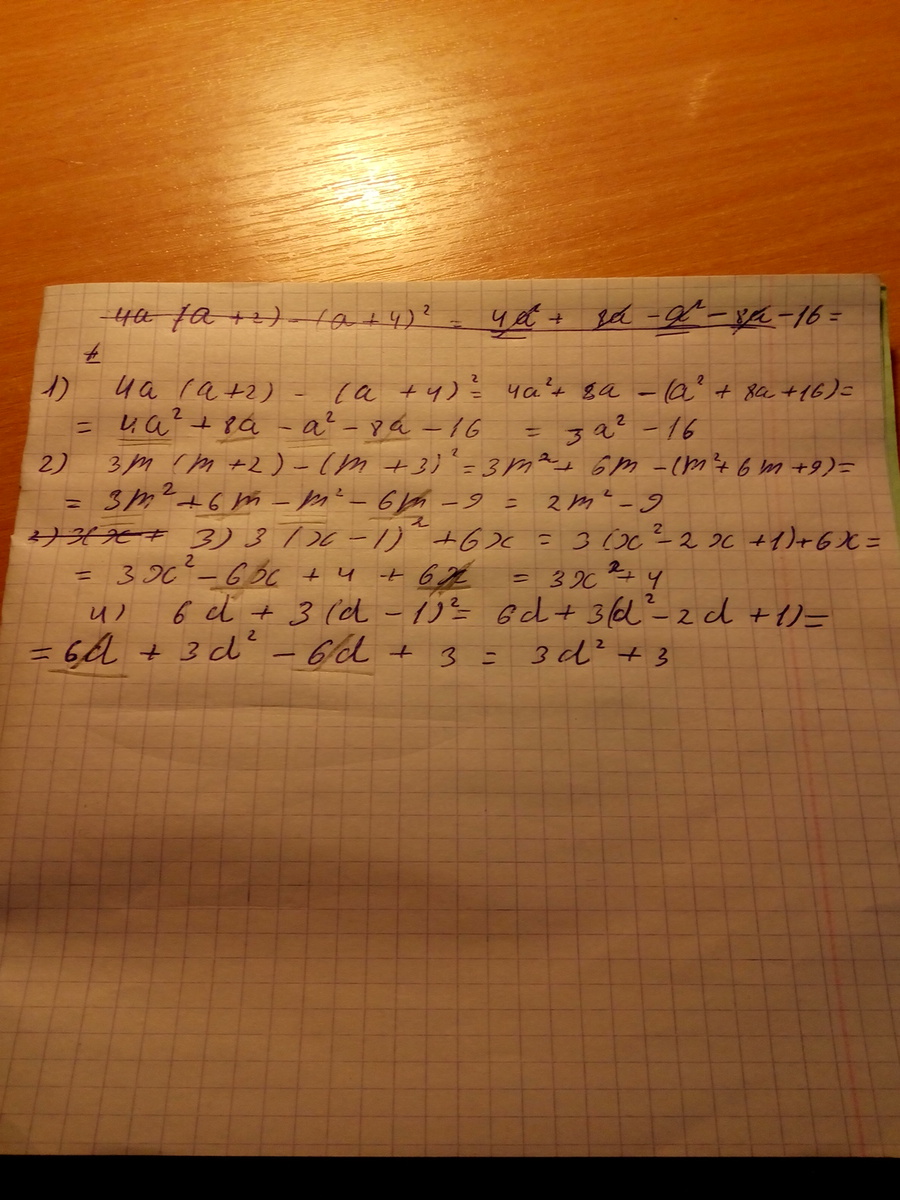 4a (a + 2) - (a + 4)² = 4a² + 8a - a² - 8a - 16 =
1) 4a (a + 2) - (a + 4)² = 4a² + 8a - (a² + 8a + 16) =
= 4a² + 8a - a² - 8a - 16 = 3a² - 16
2) 3m (m + 2) - (m + 3)² = 3m² + 6m - (m² + 6m + 9) =
= 3m² + 6m - m² - 6m - 9 = 2m² - 9
2) 3(x + 3) 3 (x - 1)² + 6x = 3 (x² - 2x + 1) + 6x =
= 3x² - 6x + 4 + 6x = 3x² + 4
4) 6d + 3 (d - 1)² = 6d + 3(d² - 2d + 1) =
= 6d + 3d² - 6d + 3 = 3d² + 3